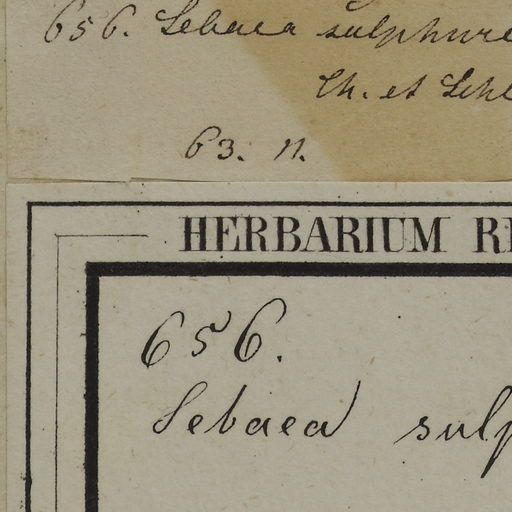 656. Sebaea sulphure
Ch. et Schl
63. 11.
HERBARIUM RE
656.
Sebaea sulp